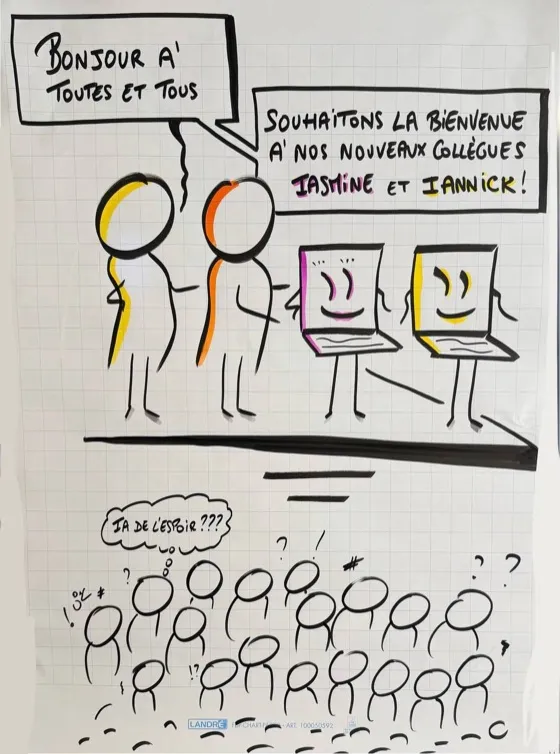 BONJOUR A'
TOUTES ET TOUS
SOUHAITONS LA BIENVENUE
A' NOS NOUVEAUX COLLÈGUES
IASMINE ET IANNICK!
IA DE L'ESPOIR???
? ! #
? ? ?
! #
!?
LANDRÉ